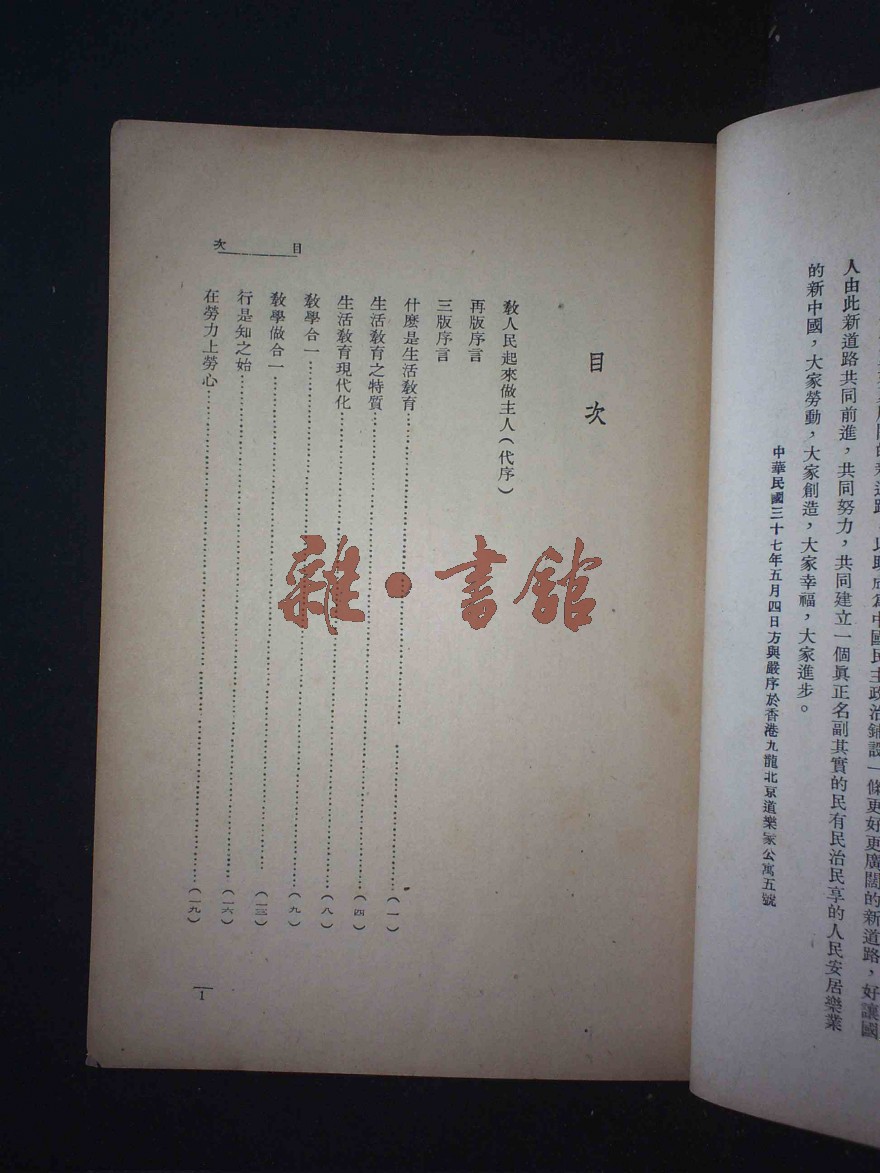 為中國民主政治鋪設一條更好更廣闊的新道路，好讓國
人由此新道路共同前進，共同努力，共同建立一個眞正名副其實的民有民治民享的人民安居樂業
的新中國，大家勞動，大家創造，大家幸福，大家進步。
中華民國三十七年五月四日方與嚴序於香港九龍北京道樂家公寓五號
目次
目次
敎人民起來做主人（代序）
再版序言
三版序言
什麼是生活敎育……（一）
生活敎育之特質……（四）
生活敎育現代化……（八）
敎學合一……（九）
敎學做合一……（一三）
行是知之始……（一六）
在勞力上勞心……（一九）
1
雜·書館